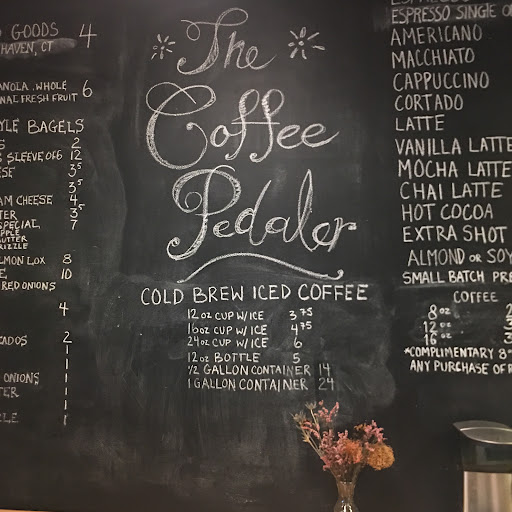 GOODS 4
HAVEN, CT
ANOLA, WHOLE
NAL FRESH FRUIT 6
YLE BAGELS
2
SLEEVE OF 6 12
ESE 3.5
3.5
AM CHEESE 4
TER 3.5
SPECIAL, 7
APPLE
BUTTER
RIZZLE
LMON LOX 8
E 10
RED ONIONS
4
CADOS 2
1
1
ONIONS 1
TER 1
1
LE 1
The
Coffee
Pedaler
COLD BREW ICED COFFEE
12 OZ CUP W/ICE 3.75
16 OZ CUP W/ICE 4.75
24 OZ CUP W/ICE 6
12 OZ BOTTLE 5
1/2 GALLON CONTAINER 14
1 GALLON CONTAINER 24
ESPRESSO
ESPRESSO SINGLE O
AMERICANO
MACCHIATO
CAPPUCCINO
CORTADO
LATTE
VANILLA LATTE
MOCHA LATTE
CHAI LATTE
HOT COCOA
EXTRA SHOT
ALMOND OR SOY
SMALL BATCH PRE
COFFEE
8 OZ 2
12 OZ 3
16 OZ 3
*COMPLIMENTARY 8
ANY PURCHASE OF